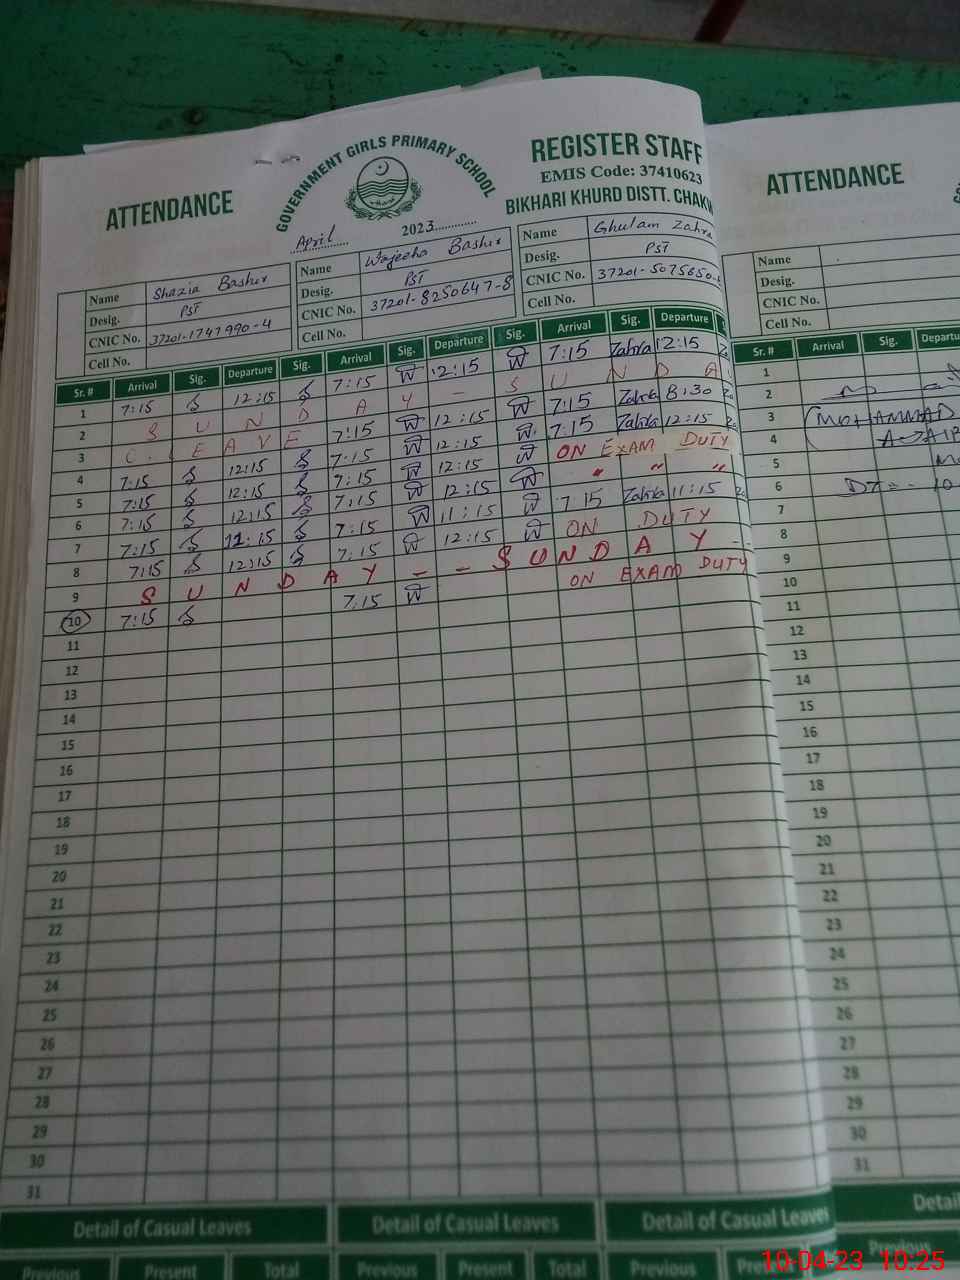 GOVERNMENT GIRLS PRIMARY SCHOOL
ATTENDANCE
REGISTER STAFF
EMIS Code: 37410623
BIKHARI KHURD DISTT. CHAK
April 2023
Name Shazia Bashir
Desig. PST
CNIC No. 37201-1747990-4
Cell No.
Name Wajeeha Bashir
Desig. PST
CNIC No. 37201-8250647-8
Cell No.
Name Ghulam Zahra
Desig. PST
CNIC No. 37201-5075650-
Cell No.
Sr. # Arrival Sig. Departure Sig. Arrival Sig. Departure Sig. Arrival Sig. Departure S
1 7:15 12:15 7:15 12:15 7:15 Zahra 12:15
2 S U N D A Y - S U N D A
3 C. LEAVE 7:15 12:15 7:15 Zahra 8:30
4 7:15 12:15 7:15 12:15 7:15 Zahra 12:15
5 7:15 12:15 7:15 12:15 ON EXAM DUTY
6 7:15 12:15 7:15 12:15 " " "
7 7:15 11:15 7:15 11:15 7 15 Zahra 11:15
8 7:15 12:15 7:15 12:15 ON DUTY
9 S U N D A Y - - S U N D A Y - -
10 7:15 7:15 ON EXAM DUTY
11
12
13
14
15
16
17
18
19
20
21
22
23
24
25
26
27
28
29
30
31
Detail of Casual Leaves Detail of Casual Leaves Detail of Casual Leaves
Previous Present Total Previous Present Total Previous
ATTENDANCE
Name
Desig.
CNIC No.
Cell No.
Sr. # Arrival Sig. Departu
1
2
3 MOHAMMAD
4
5
6
7
8
9
10
11
12
13
14
15
16
17
18
19
20
21
22
23
24
25
26
27
28
29
30
31
Detail
Previous
10-04-23 10:25